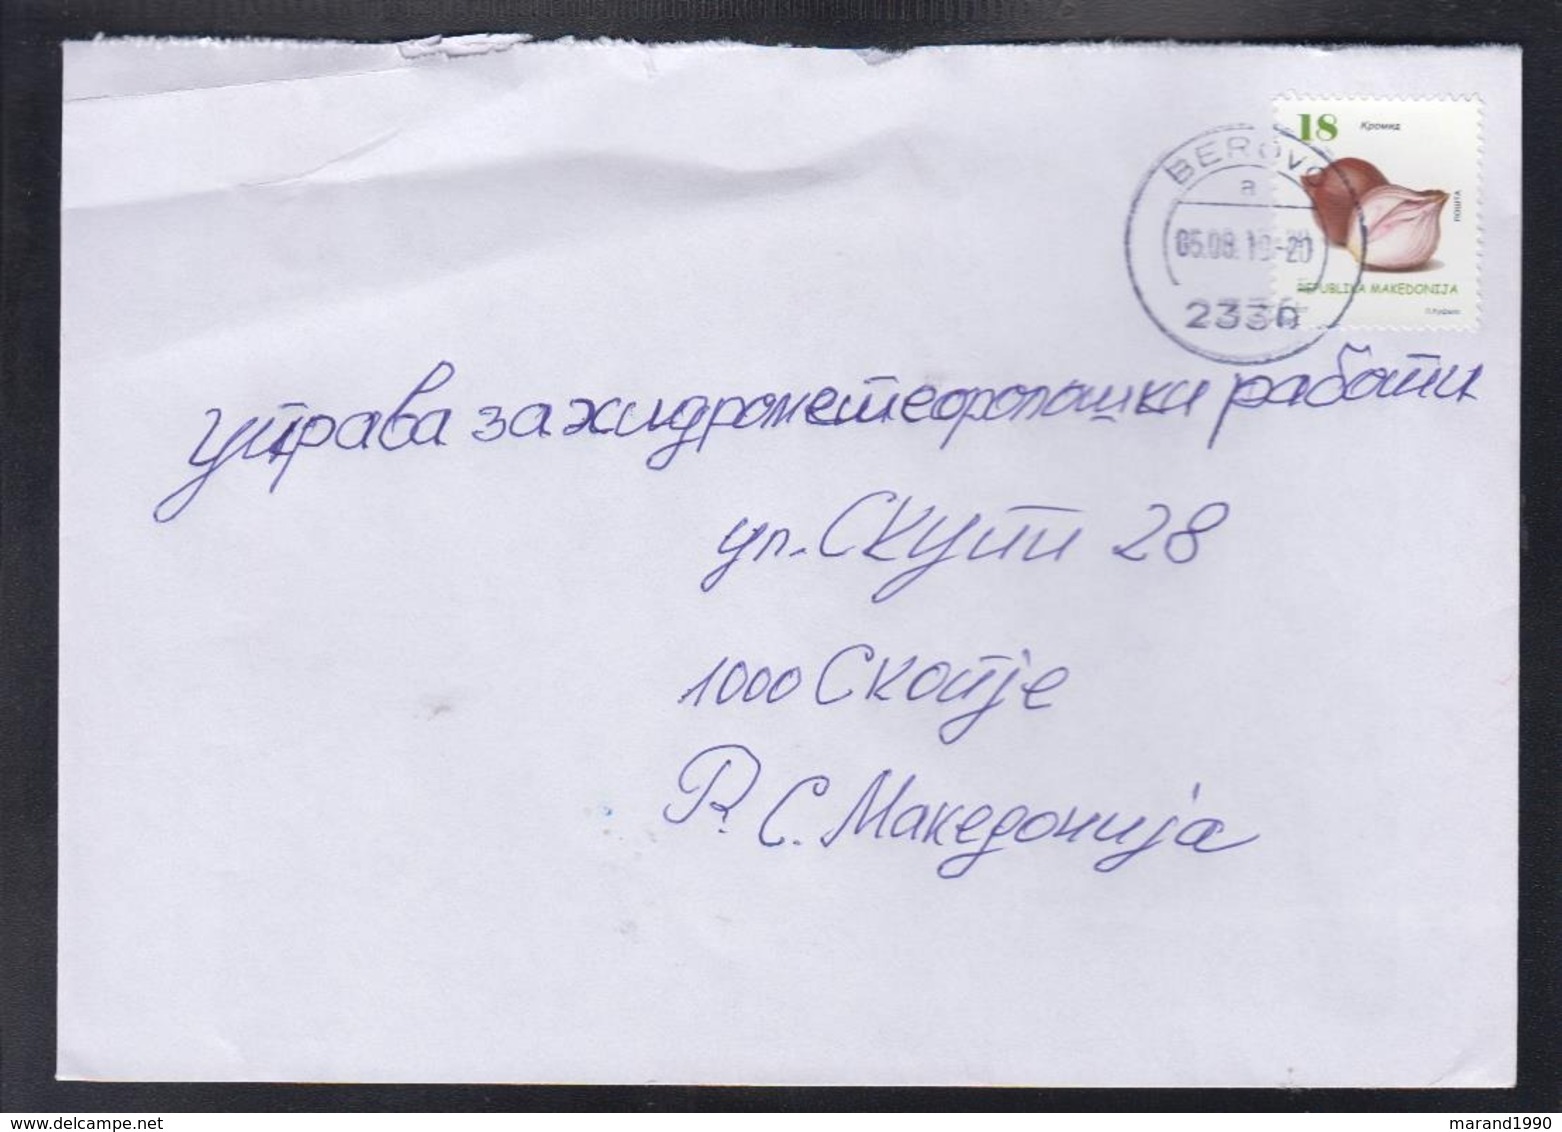 18 Кромид
ПОШТА
REPUBLIKA MAKEDONIJA
BEROVO
a
2330
Управа за хидрометеоролошки работи
ул. СКУПИ 28
1000 Скопје
Р. С. Македонија
marand1990